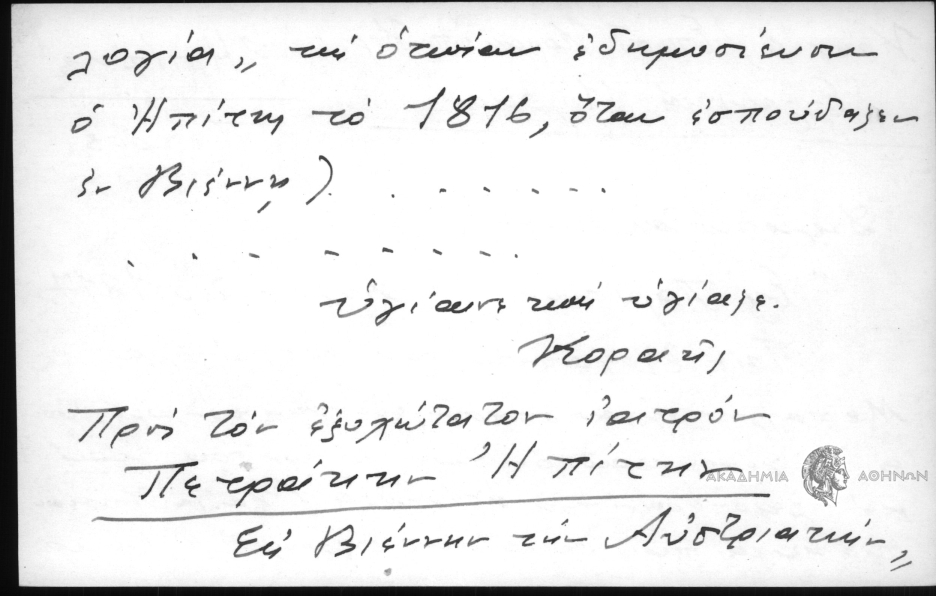 λογία„ τὴν ὁποίαν ἐδημοσίευσεν
ὁ Ἠπίτης τὸ 1816, ὅταν ἐσπούδαζεν
ἐν Βιέννῃ) . . . . . .
. . . . . . . . .
ὑγίαινε καὶ ὑγίαζε.
Κοραῆς
Πρὸς τὸν ἐξοχώτατον ἰατρόν
Πετράκην Ἠπίτην
Εἰς Βιέννην τὴν Αὐστριακήν„
ΑΚΑΔΗΜΙΑ ΑΘΗΝΩΝ